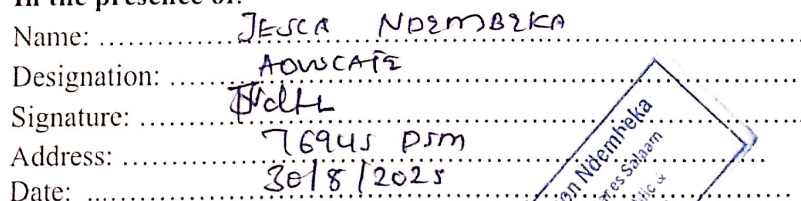 In the presence of:
Name: JESCA NDEMBEKA
Designation: ADVOCATE
Signature:
Address: 76945 DSM
Date: 30/8/2025
on Ndembeka
es Salaam